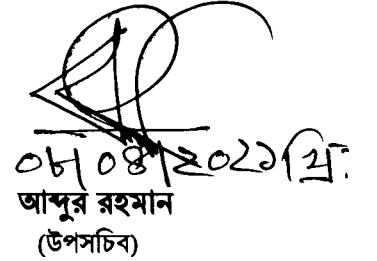 ০৮/০৪/২০২১ খ্রি:
আব্দুর রহমান
(উপসচিব)